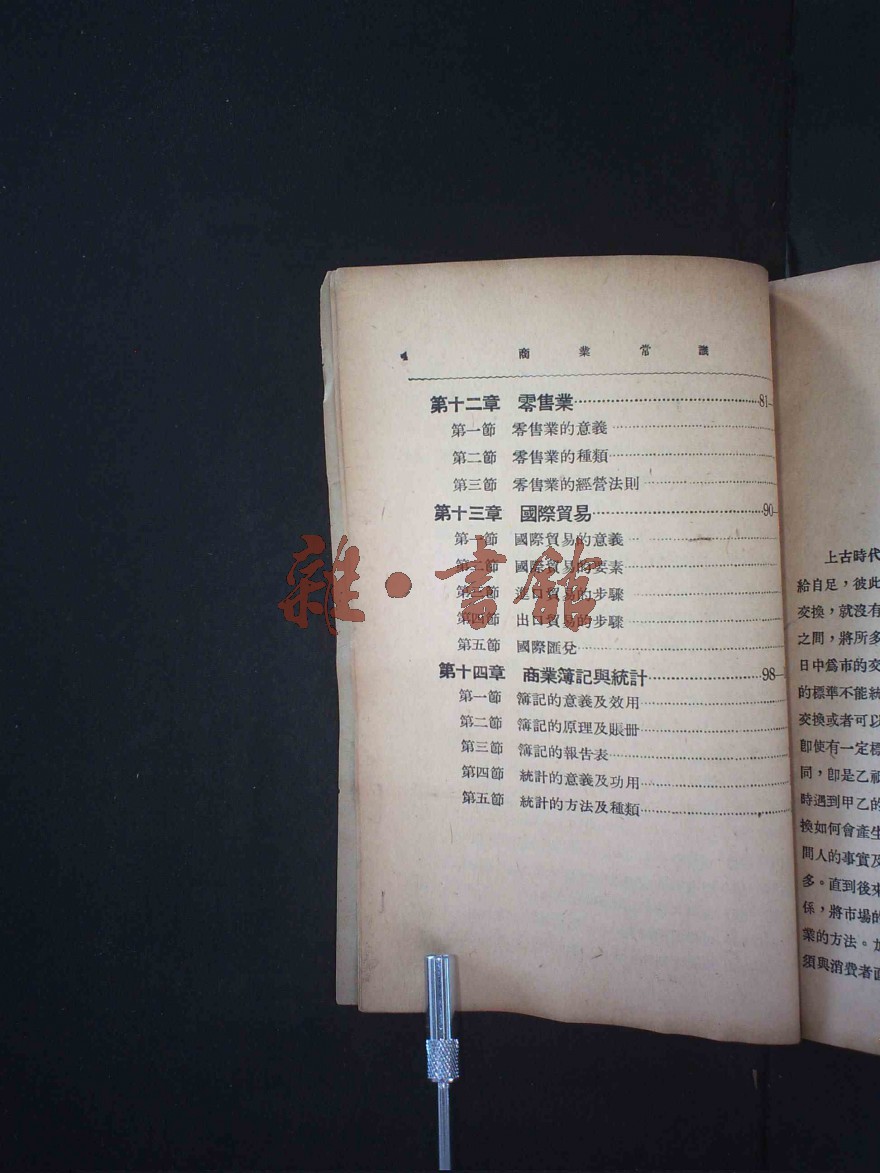 商業常識
第十二章 零售業…81—
第一節 零售業的意義
第二節 零售業的種類
第三節 零售業的經營法則
第十三章 國際貿易…90—
第一節 國際貿易的意義
第二節 國際貿易的要素
第三節 進口貿易的步驟
第四節 出口貿易的步驟
第五節 國際匯兌
第十四章 商業簿記與統計…98—
第一節 簿記的意義及效用
第二節 簿記的原理及賬冊
第三節 簿記的報告表
第四節 統計的意義及功用
第五節 統計的方法及種類
雜·書館
上古時代
給自足，彼此
交換，就沒有
之間，將所多
日中爲市的交
的標準不能統
交換或者可以
卽使有一定標
同，卽是乙
時遇到甲乙的
換如何會產生
間人的事實及
多。直到後來
係，將市場的
業的方法。
須與消費者直